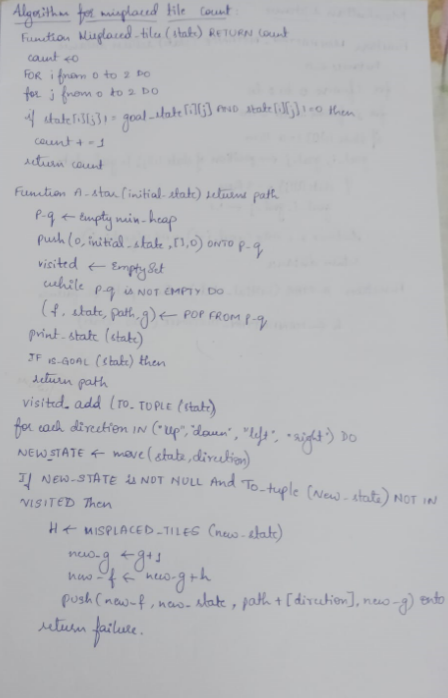 Algorithm for misplaced tile count:
Function Misplaced-tile (state) RETURN count
count ←0
FOR i from 0 to 2 DO
for j from 0 to 2 DO
if state[i][j] != goal_state[i][j] AND state[i][j] != 0 then
count + = 1
return count
Function A-star (initial-state) returns path
P-q ← Empty min-heap
push (0, initial-state, [], 0) ONTO P-q
visited ← Empty Set
while P-q is NOT EMPTY DO
(f, state, path, g) ← POP FROM P-q
print-state (state)
IF is-GOAL (state) then
return path
visited. add (TO_TUPLE (state)
for each direction IN ("up", "down", "left", "right") DO
NEW_STATE ← move (state, direction)
If NEW-STATE is NOT NULL And To-tuple (New-state) NOT IN
VISITED Then
H ← MISPLACED_TILES (new-state)
new-g ← g+1
new-f ← new-g+h
push (new-f, new-state, path + [direction], new-g) onto
return failure.